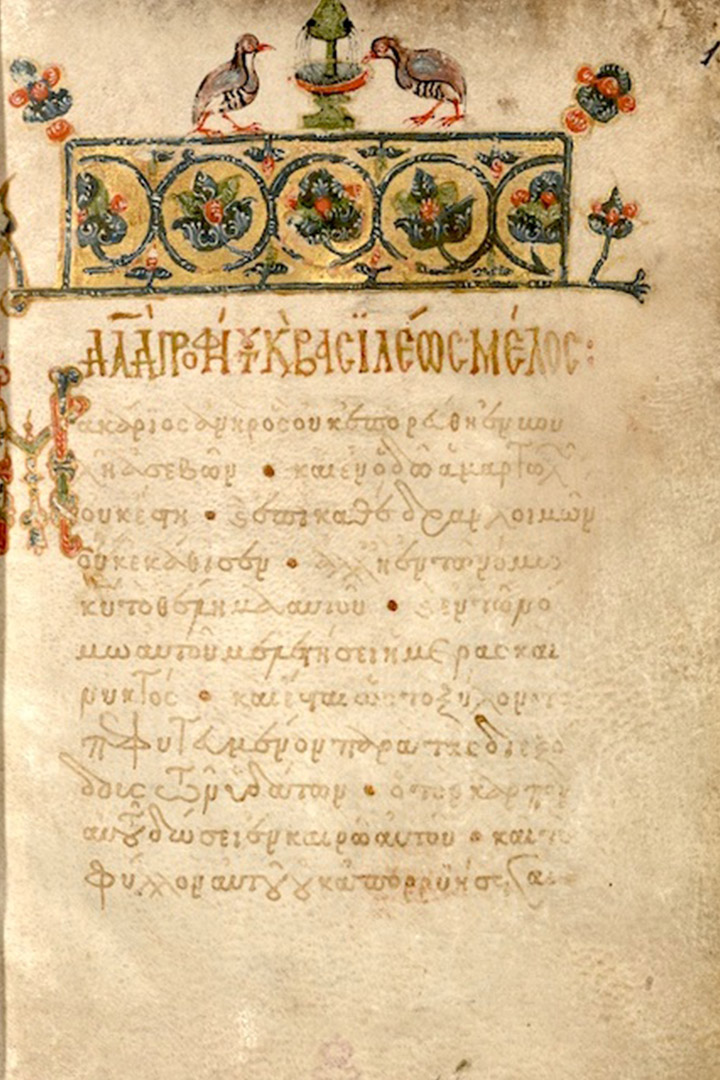 ΔΑΔ ΠΡΟΦΗΤΟΥ Κ ΒΑСΪΛΈΩС ΜΈΛΟС:
Μακάριος ἀνὴρ ὃς οὐκ ἐπορεύθη ἐν βου
λῆ ἀσεβῶν • καὶ ἐν ὁδῶ ἁμαρτωλ
οὐκ ἔστη • καὶ ἐπὶ καθέδραν λοιμῶν
οὐκ ἐκάθισεν • ἀλλ ἢ ἐν τῶ νόμω
κυ τὸ θέλημα αυτοῦ • καὶ ἐν τῶ νό
μω αυτοῦ μελετήσει ἡμέρας καὶ
νυκτός • καὶ ἔσται ὡς τὸ ξύλον τὸ
πεφυτευμένον παρὰ τὰς διεξό
δους τῶν ὑδάτων • ὃ τὸν καρπὸν
αυτοῦ δώσει ἐν καιρῶ αυτοῦ • καὶ τὸ
φύλλον αυτοῦ οὐκ ἀπορρυήσεται